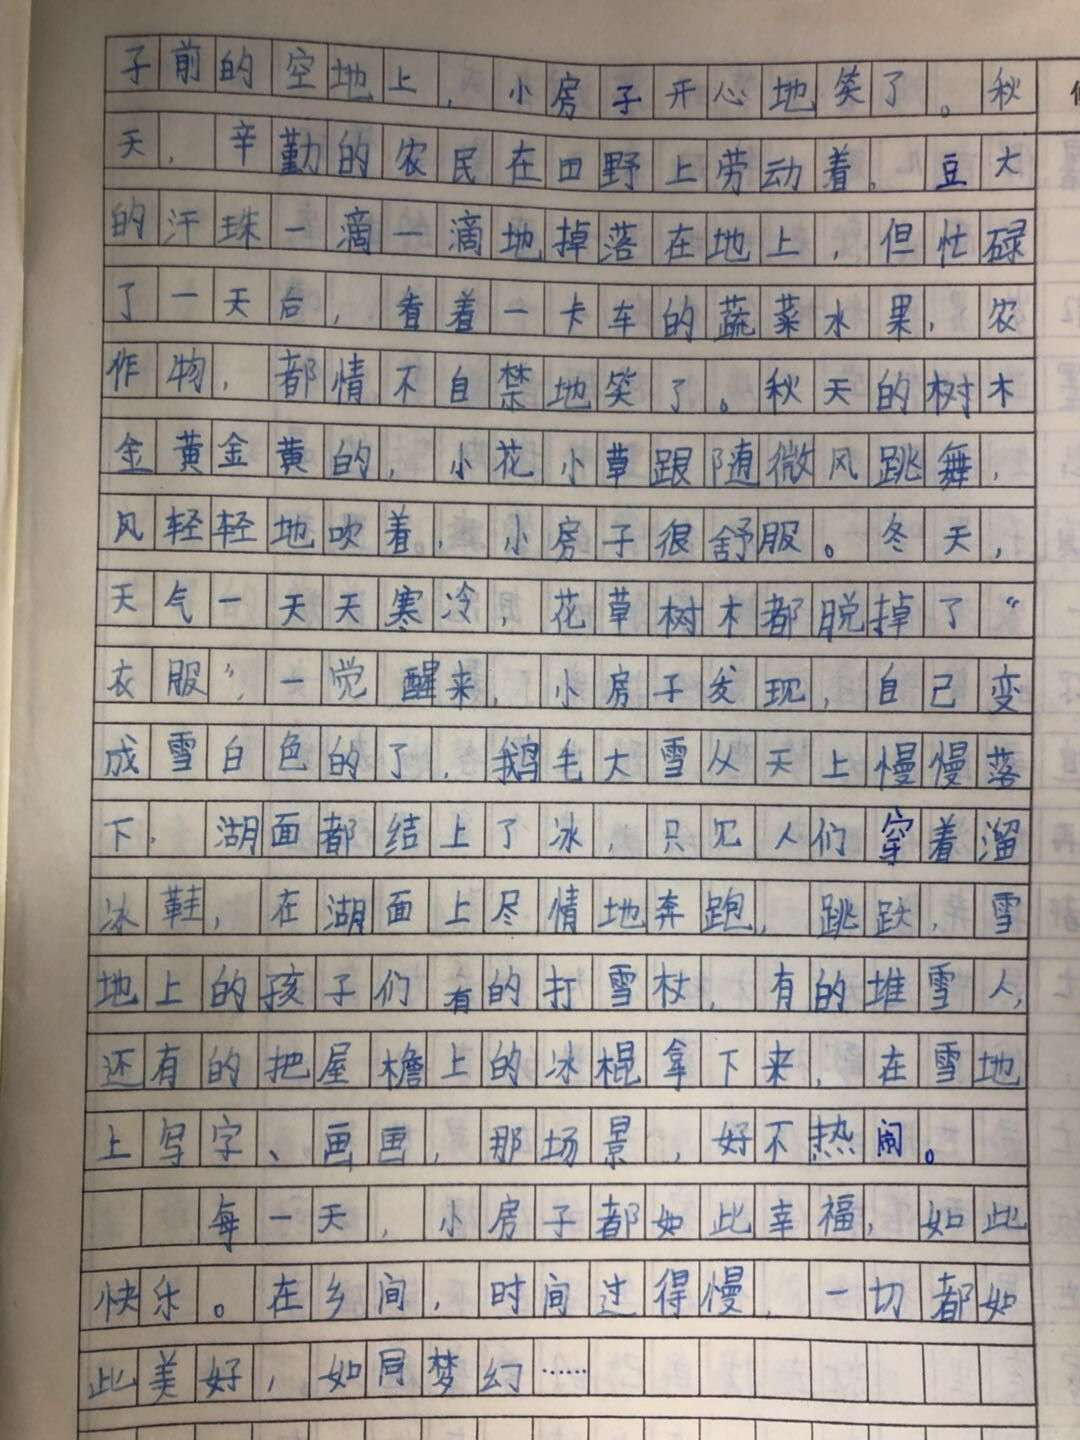 子前的空地上，小房子开心地笑了。秋
天，辛勤的农民在田野上劳动着，豆大
的汗珠一滴一滴地掉落在地上，但忙碌
了一天后，看着一卡车的蔬菜水果，农
作物，都情不自禁地笑了。秋天的树木
金黄金黄的，小花小草跟随微风跳舞，
风轻轻地吹着，小房子很舒服。冬天，
天气一天天寒冷，花草树木都脱掉了“
衣服”，一觉醒来，小房子发现，自己变
成雪白色的了，鹅毛大雪从天上慢慢落
下，湖面都结上了冰，只见人们穿着溜
冰鞋，在湖面上尽情地奔跑，跳跃，雪
地上的孩子们有的打雪杖，有的堆雪人，
还有的把屋檐上的冰棍拿下来，在雪地
上写字、画画，那场景，好不热闹。
每一天，小房子都如此幸福，如此
快乐。在乡间，时间过得慢，一切都如
此美好，如同梦幻……